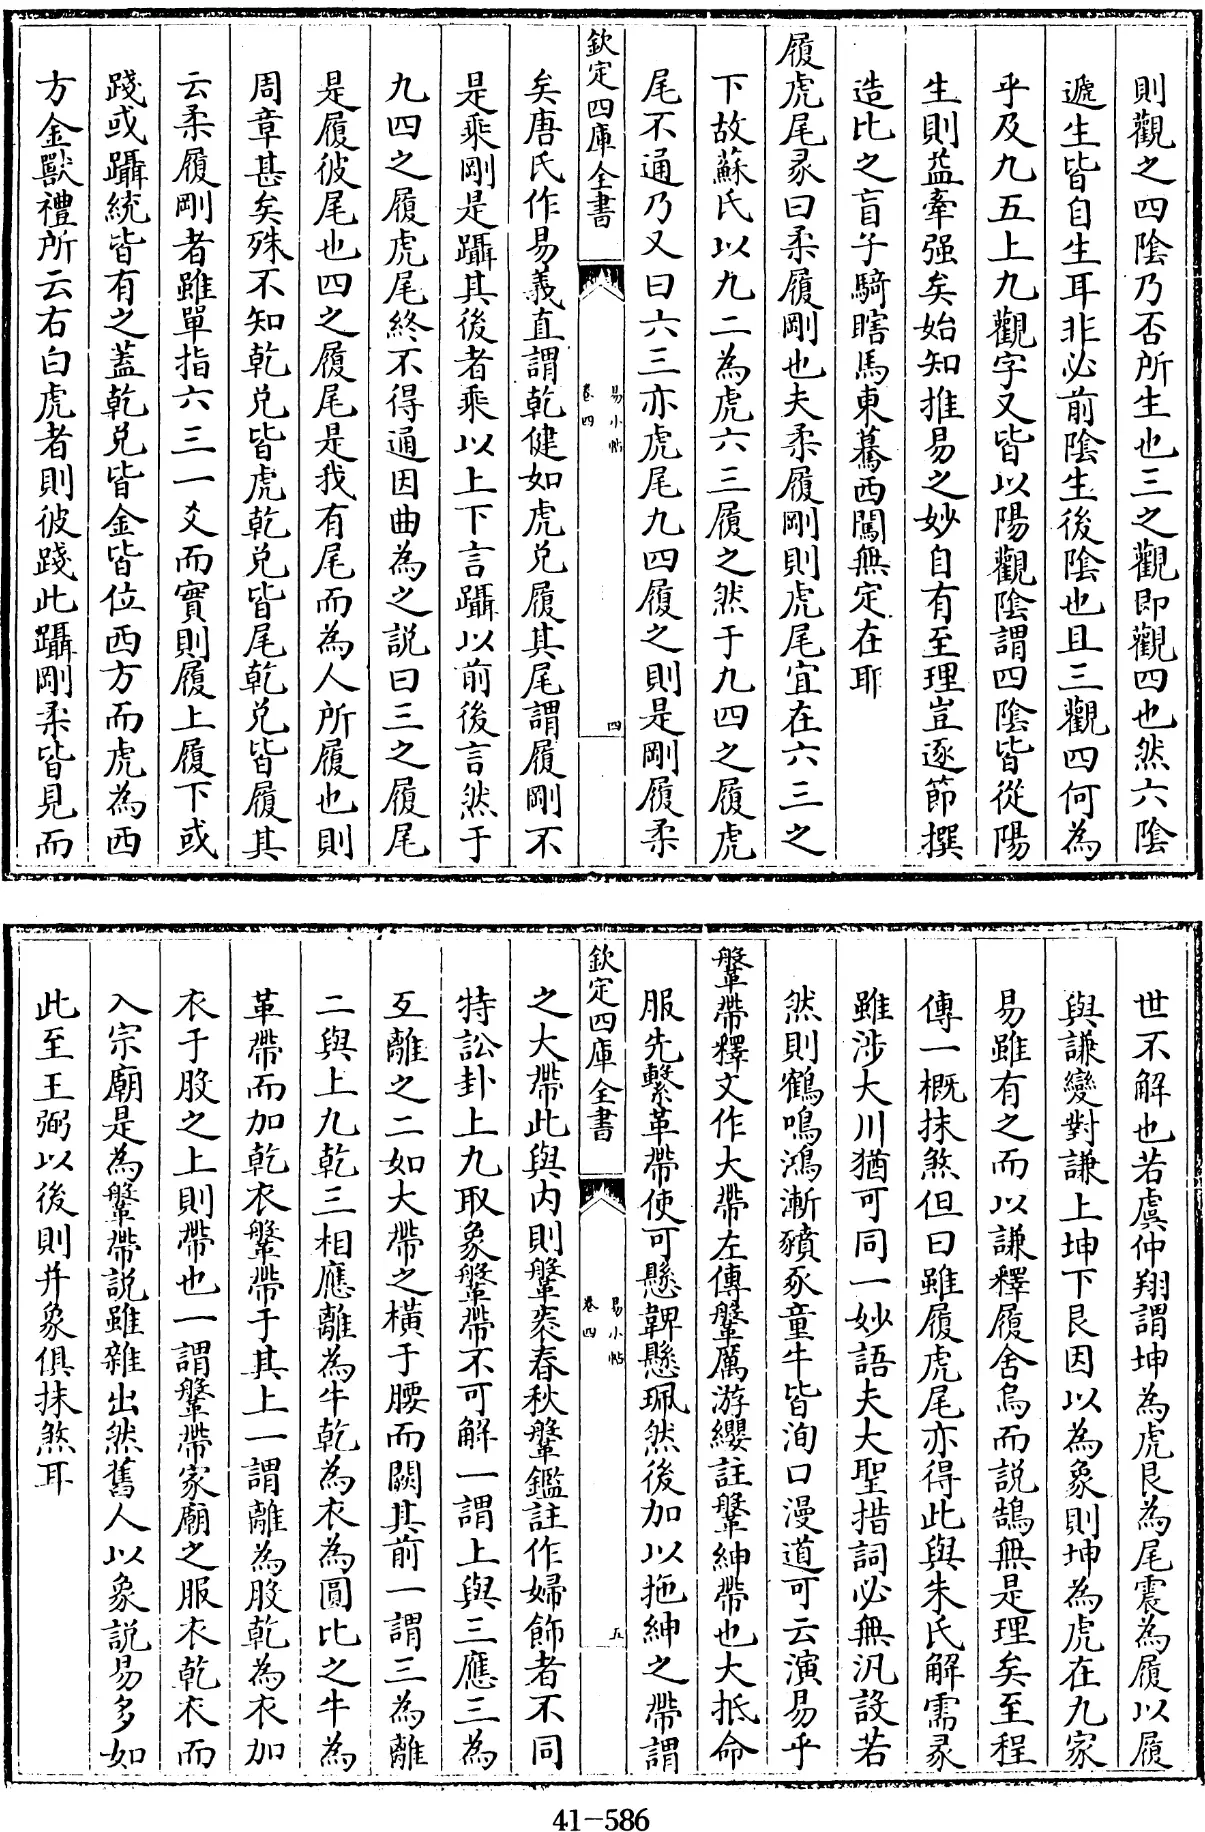 則觀之四陰乃否所生也三之觀即觀四也然六陰
遞生皆自生耳非必前陰生後陰也且三觀四何為
乎及九五上九觀字又皆以陽觀陰謂四陰皆從陽
生則益牽强矣始知推易之妙自有至理豈逐節撰
造比之盲子騎瞎馬東驀西闖無定在耶
履虎尾彖曰柔履剛也夫柔履剛則虎尾宜在六三之
下故蘇氏以九二為虎六三履之然于九四之履虎
尾不通乃又曰六三亦虎尾九四履之則是剛履柔
欽定四庫全書
易小帖
卷四
四
矣唐氏作易義直謂乾健如虎兑履其尾謂履剛不
是乘剛是躡其後者乘以上下言躡以前後言然于
九四之履虎尾終不得通因曲為之説曰三之履尾
是履彼尾也四之履尾是我有尾而為人所履也則
周章甚矣殊不知乾兑皆虎乾兑皆尾乾兑皆履其
云柔履剛者雖單指六三一爻而實則履上履下或
踐或躡統皆有之蓋乾兑皆金皆位西方而虎為西
方金獸禮所云右白虎者則彼踐此躡剛柔皆見而
世不解也若虞仲翔謂坤為虎艮為尾震為履以履
與謙變對謙上坤下艮因以為象則坤為虎在九家
易雖有之而以謙釋履舍烏而説鵠無是理矣至程
傳一概抹煞但曰雖履虎尾亦得此與朱氏解需彖
雖涉大川猶可同一妙語夫大聖措詞必無汎設若
然則鶴鳴鴻漸豶豕童牛皆洵口漫道可云演易乎
鞶帶釋文作大帶左傳鞶厲游纓註鞶紳帶也大抵命
服先繫革帶使可懸鞞懸珮然後加以拖紳之帶謂
欽定四庫全書
易小帖
卷四
五
之大帶此與内則鞶袠春秋鞶鑑註作婦飾者不同
特訟卦上九取象鞶帶不可解一謂上與三應三為
互離之二如大帶之橫于腰而闕其前一謂三為離
二與上九乾三相應離為牛乾為衣為圓比之牛為
革帶而加乾衣鞶帶于其上一謂離為股乾為衣加
衣于股之上則帶也一謂鞶帶家廟之服衣乾衣而
入宗廟是為鞶帶説雖雜出然舊人以象説易多如
此至王弼以後則并象俱抹煞耳
41-586